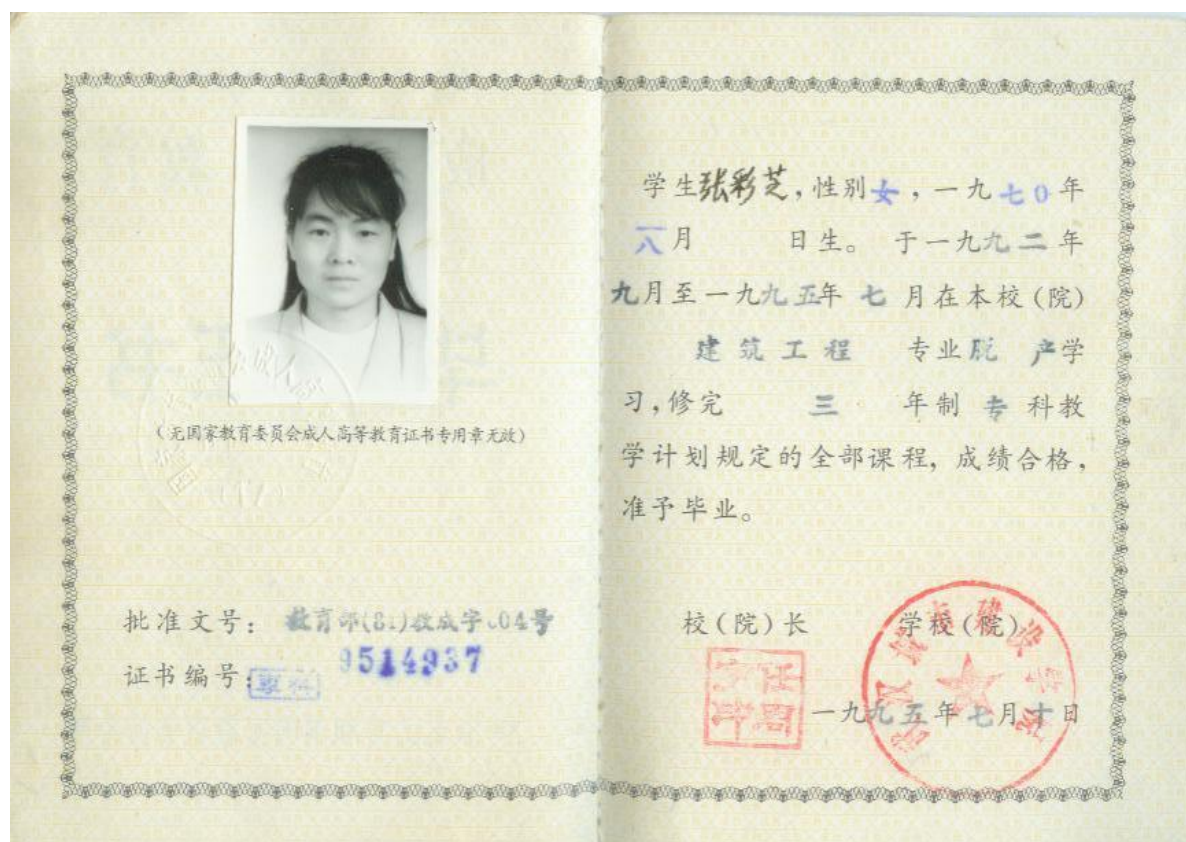 （无国家教育委员会成人高等教育证书专用章无效）
批准文号：教育部(81)教成字.04号
证书编号：专科 9514937
学生张彩芝，性别女，一九七0年
八月 日生。于一九九二年
九月至一九九五年七月在本校（院）
建筑工程 专业脱产学
习，修完 三 年制 专 科教
学计划规定的全部课程，成绩合格，
准予毕业。
校（院）长 学校（院）
一九九五年七月十日